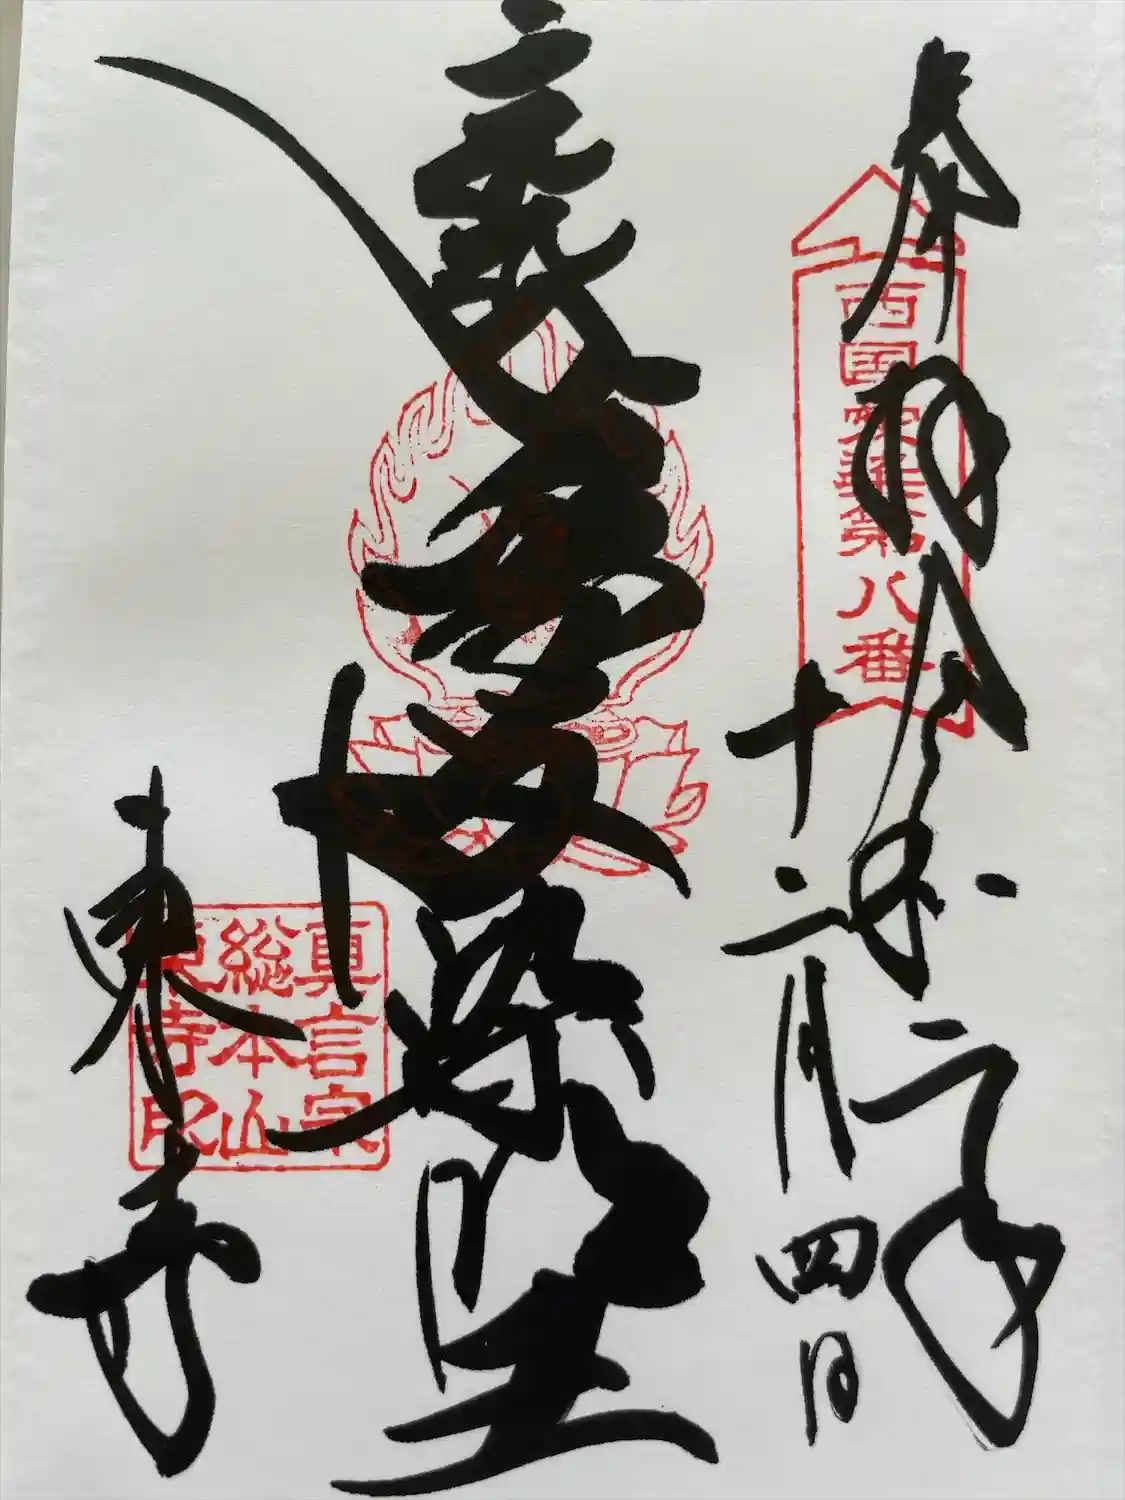 奉拝 令和二年
西国愛染第八番
十二月四日
愛染明王
真言宗
総本山
東寺印
東寺